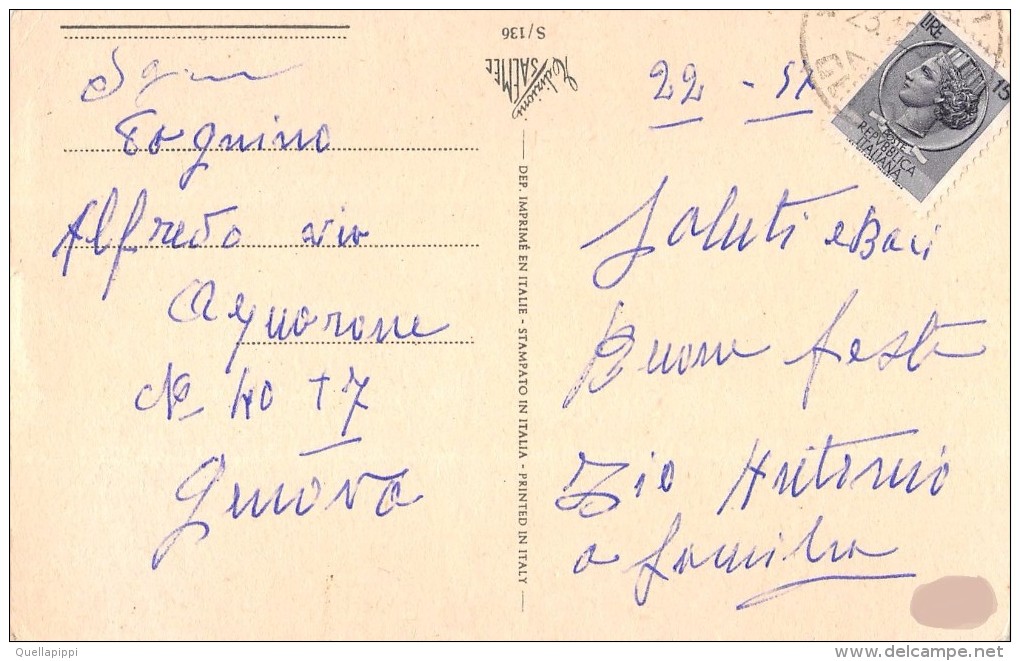 S/136
Edizioni
SAEMEC
DEP. IMPRIMÉ EN ITALIE - STAMPATO IN ITALIA - PRINTED IN ITALY
Alfredo via
Aquarone
No 40 + 7
Genova
22 - 
LIRE 15
POSTE
REPVBBLICA
ITALIANA
23
Saluti e Baci
Buone feste
Zio Antonio
e famiglia
Quellapippi
www.delcampe.net